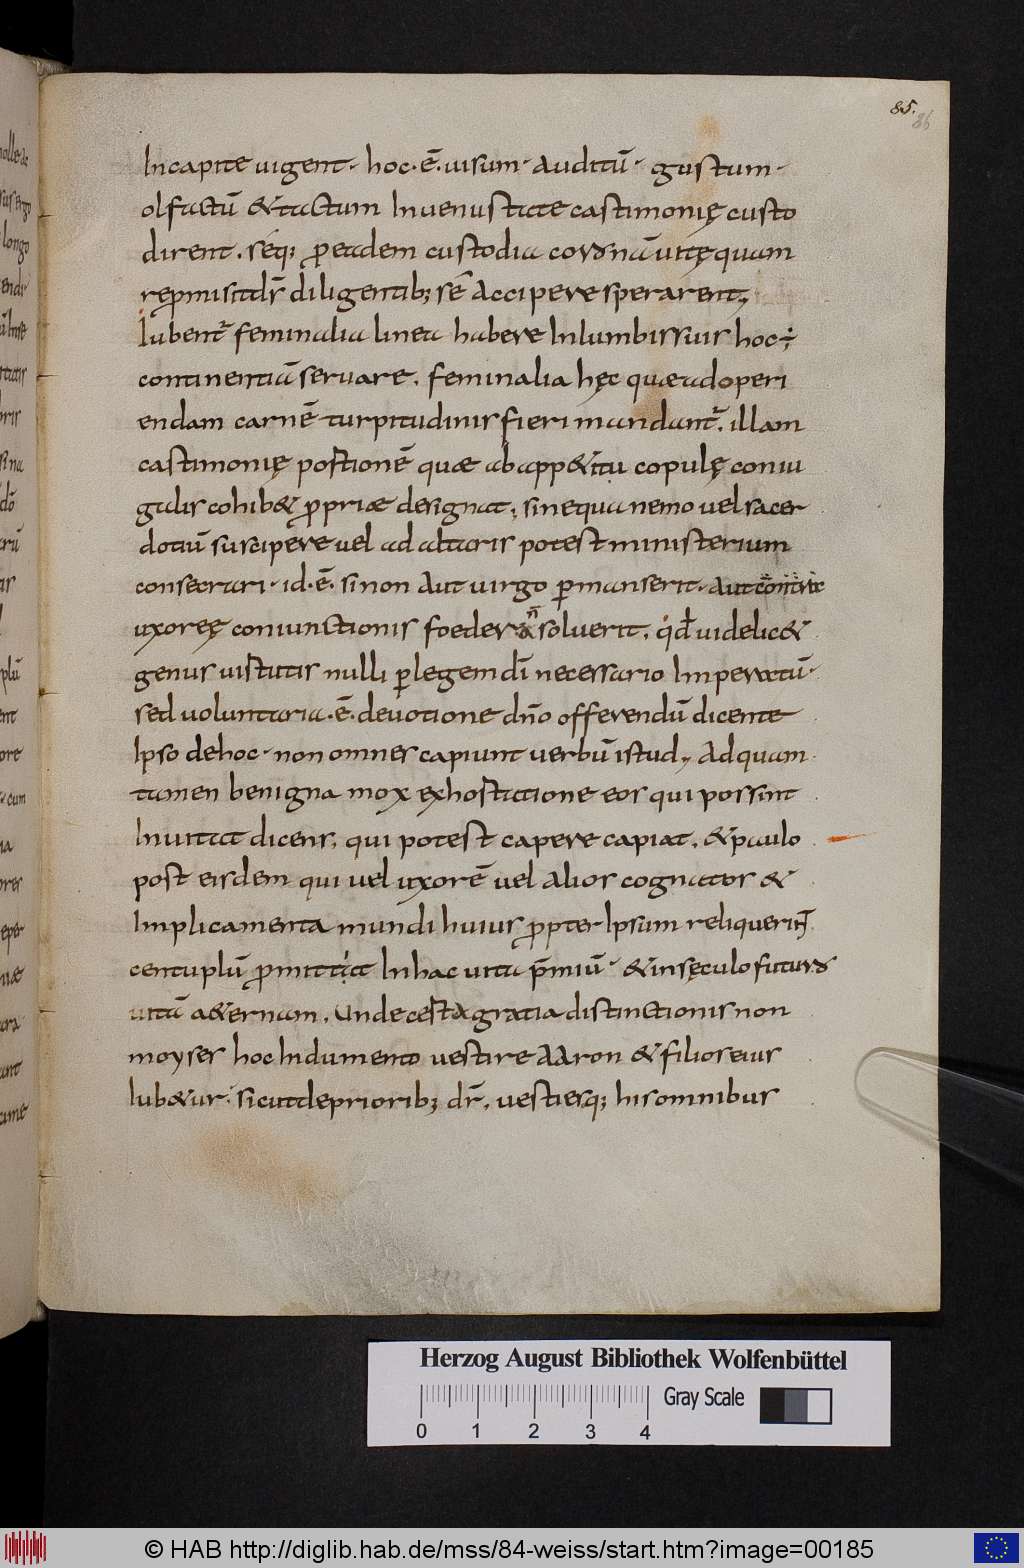 85.
86
In capite uigent · hoc · ē · uisum · auditū · gustum ·
olfactū &tactum In uenustate castimonię custo
dirent . seq; ꝑ eadem custodia coronā uitę quam
repmisit dr̄ diligentib; sē accipere sperarent,
Iubent᷑ feminalia linea habere In lumbis suis hoc ÷
continentiā seruare . feminalia hęc quæ ad operi
endam carnē turpitudinis fieri mandant᷑ . illam
castimonię portionē quæ ab app&itu copulę coniu
galis cohib& propriæ designat . sine qua nemo uel sacer
dotiū suscipere uel ad altaris potest ministerium
consecrari · id · ē · si non aut uirgo ꝑmanserit · aut
uxoreę coniunctionis foedera soluerit . qd̄ uidelic&
genus uirtutis nulli ꝑ legem dī necessario Imperatū ·
sed uoluntaria · ē · deuotione dn̄o offerendū dicente
Ipso de hoc · non omnes capiunt uerbū istud, Ad quam
tamen benigna mox exhortatione eos qui possint
Inuitat dicens . qui potest capere capiat . & paulo
post eisdem qui uel uxorē uel alios cognatos &
Implicamenta mundi huius propter Ipsum reliquerint̄
centuplū promittit In hac uita p̄miū · & in sęculo futuro
uitā a&ernam . Unde cesta gratia distinctionis non
moyses hoc Indumento uestire aaron & filios eius
Iub&ur · sicut de priorib; dr̄ . uestiesq; his omnibus
Herzog August Bibliothek Wolfenbüttel
Gray Scale
0 1 2 3 4
© HAB http://diglib.hab.de/mss/84-weiss/start.htm?image=00185